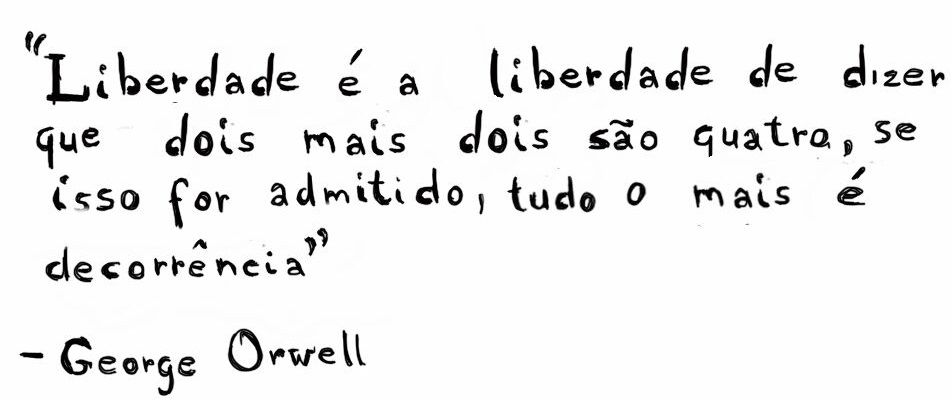 “Liberdade é a liberdade de dizer
que dois mais dois são quatro, se
isso for admitido, tudo o mais é
decorrência”
- George Orwell